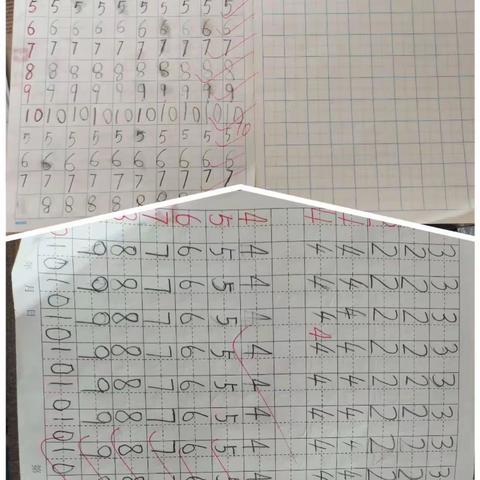 5 5 5 5 5 5 5 5 5 5
6 6 6 6 6 6 6 6 6 6
7 7 7 7 7 7 7 7 7 7
8 8 8 8 8 8 8 8 8 8
9 9 9 9 9 9 9 9 9 9
10 10 10 10 10 10 10 10 10 10
5 5 5 5 5 5 5 5 5 5
6 6 6 6 6 6 6 6 6 6
7 7 7 7 7 7 7 7 7 7
8 8 8 8 8
3 3 3 3 3 3 3 3
2 2 2 2 2 2 2 2
2 2 2 2 2 2 2 2
4 4 4 4 4 4 4 4
4 4 4 4 4 4 4 4
4 4 4 4 4 4 4 4
5 5 5 5 5 5 5 5
6 6 6 6 6 6 6 6
7 7 7 7 7 7 7 7
8 8 8 8 8 8 8 8
9 9 9 9 9 9 9
10 10 10 10 10 10 10
年 月 日